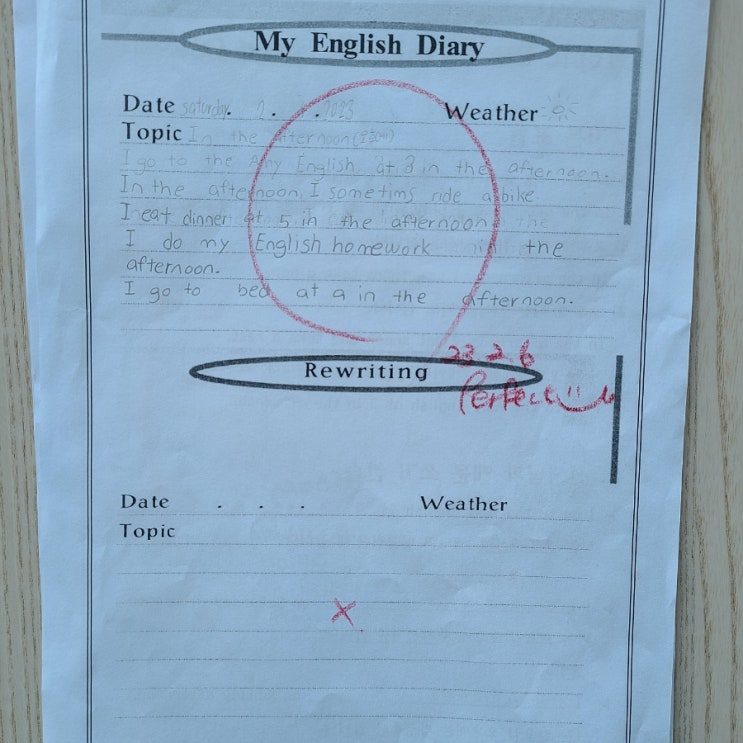 My English Diary
Date saturday. 2. . 2023 Weather
Topic In the afternoon (오후에)
I go to the Amy English at 3 in the afternoon.
In the afternoon, I sometims ride a bike
I eat dinner at 5 in the afternoon
I do my English homework in the
afternoon.
I go to bed at 9 in the afternoon.
Rewriting
23. 2. 6
Perfect
Date . . . Weather
Topic